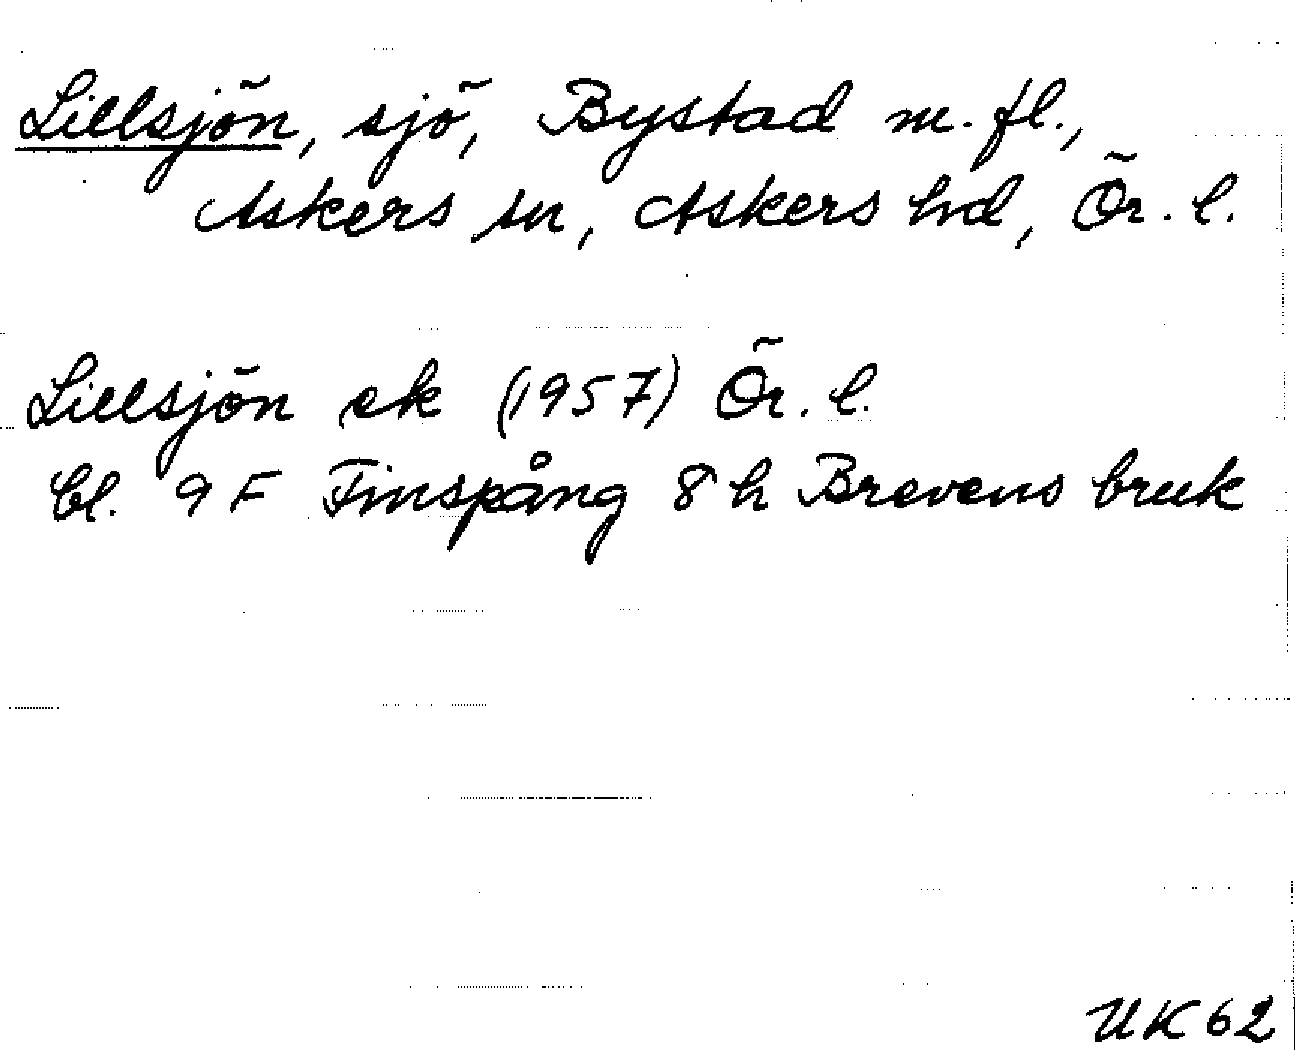 Lillsjön, sjö, Bystad m. fl.,
Askers sn, Askers hd, Ör. l.
Lillsjön ek (1957) Ör. l.
bl. 9 F Finspång 8 h Brevens bruk
UK 62